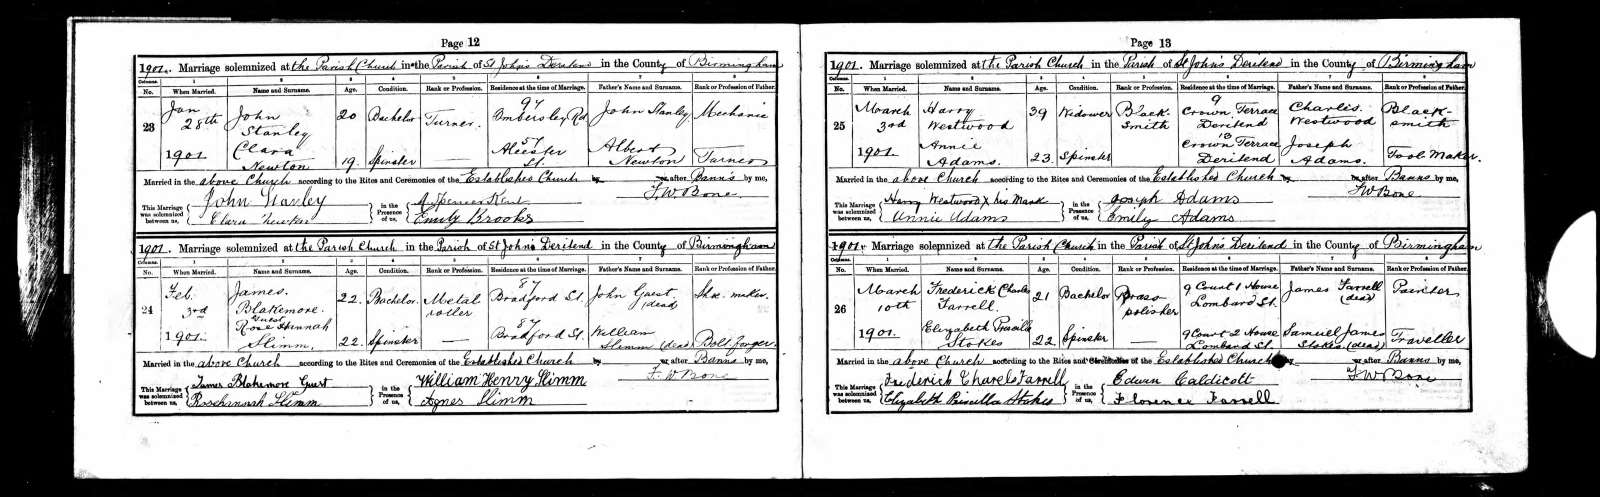 Page 12
1901. Marriage solemnized at the Parish Church in the Parish of St John's Deritend in the County of Birmingham
Columns. 1 2 3 4 5 6 7 8
No. When Married. Name and Surname. Age. Condition. Rank or Profession. Residence at the time of Marriage. Father's Name and Surname. Rank or Profession of Father.
23 Jan 28th 1901 John Stanley 20 Bachelor Turner. 97 Ombersley Rd John Stanley Mechanic
Clara Newton 19. Spinster — 57 Alcester St. Albert Newton Turner
Married in the above Church according to the Rites and Ceremonies of the Established Church by or after Banns by me,
John Stanley F. W. Bone.
This Marriage was solemnized between us, Clara Newton in the Presence of us, Emily Brooks
1901. Marriage solemnized at the Parish Church in the Parish of St John's Deritend in the County of Birmingham
Columns. 1 2 3 4 5 6 7 8
No. When Married. Name and Surname. Age. Condition. Rank or Profession. Residence at the time of Marriage. Father's Name and Surname. Rank or Profession of Father.
24 Feb. 3rd 1901. James. Blakemore. Guest 22. Bachelor Metal roller 87 Bradford St. John Guest (dead) Shoe maker.
Rose Hannah Slimm. 22. Spinster — 87 Bradford St. William Slimm (dead) Bolt forger.
Married in the above Church according to the Rites and Ceremonies of the Established Church by or after Banns by me,
James Blakemore Guest William Henry Slimm F. W Bone
This Marriage was solemnized between us, Rosehannah Slimm in the Presence of us, Agnes Slimm
Page 13
1901. Marriage solemnized at the Parish Church in the Parish of St John's Deritend in the County of Birmingham
Columns. 1 2 3 4 5 6 7 8
No. When Married. Name and Surname. Age. Condition. Rank or Profession. Residence at the time of Marriage. Father's Name and Surname. Rank or Profession of Father.
25 March 3rd 1901. Harry Westwood 39 Widower Black-smith 9 Crown Terrace Deritend Charles. Westwood Black-smith
Annie Adams. 23. Spinster 13 Crown Terrace Deritend Joseph Adams. Tool Maker.
Married in the above Church according to the Rites and Ceremonies of the Established Church by or after Banns by me,
Harry Westwood X his Mark Joseph Adams F W Bone
This Marriage was solemnized between us, Annie Adams in the Presence of us, Emily Adams
1901. Marriage solemnized at the Parish Church in the Parish of St John's Deritend in the County of Birmingham
Columns. 1 2 3 4 5 6 7 8
No. When Married. Name and Surname. Age. Condition. Rank or Profession. Residence at the time of Marriage. Father's Name and Surname. Rank or Profession of Father.
26 March 10th 1901. Frederick Charles Farrell. 21 Bachelor Brass polisher 9 Court 1 House Lombard St. James Farrell (dead) Painter
Elizabeth Priscilla Stokes 22 Spinster 9 Court 2 House Lombard St. Samuel James Stokes (dead) Traveller
Married in the above Church according to the Rites and Ceremonies of the Established Church by or after Banns by me,
Frederick Charels Farrell Edwin Caldicott F W Bone
This Marriage was solemnized between us, Elizabeth Priscilla Stokes in the Presence of us, Florence Farrell